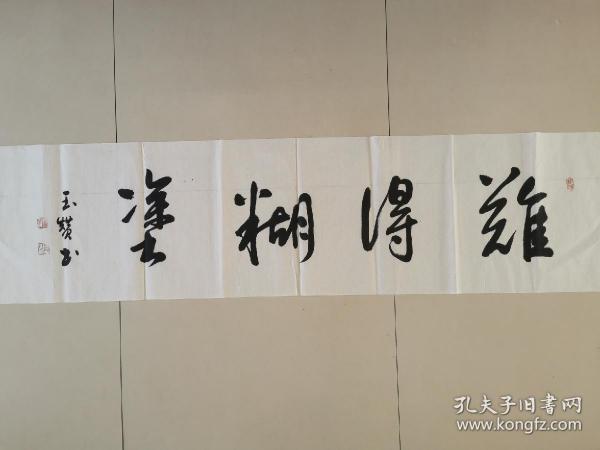 難得糊塗
玉璞书
孔夫子旧书网
www.kongfz.com